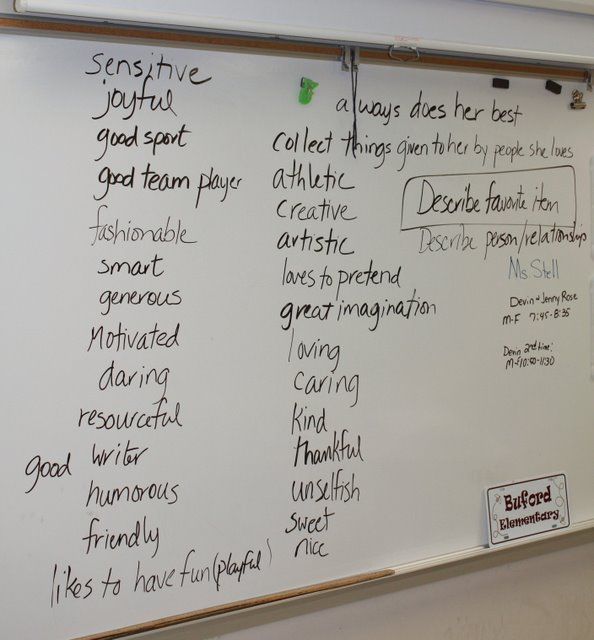 sensitive
joyful
good sport
good team player
fashionable
smart
generous
Motivated
daring
resourceful
good writer
humorous
friendly
likes to have fun (playful)
always does her best
collect things given to her by people she loves
athletic
creative
artistic
loves to pretend
great imagination
loving
caring
kind
thankful
unselfish
sweet
nice
Describe favorite item
Describe person/relationship
Ms. Stell
Devin & Jenny Rose
M-F 7:45-8:35
Devin 2nd time:
M-F 10:50-11:30
Buford
Elementary